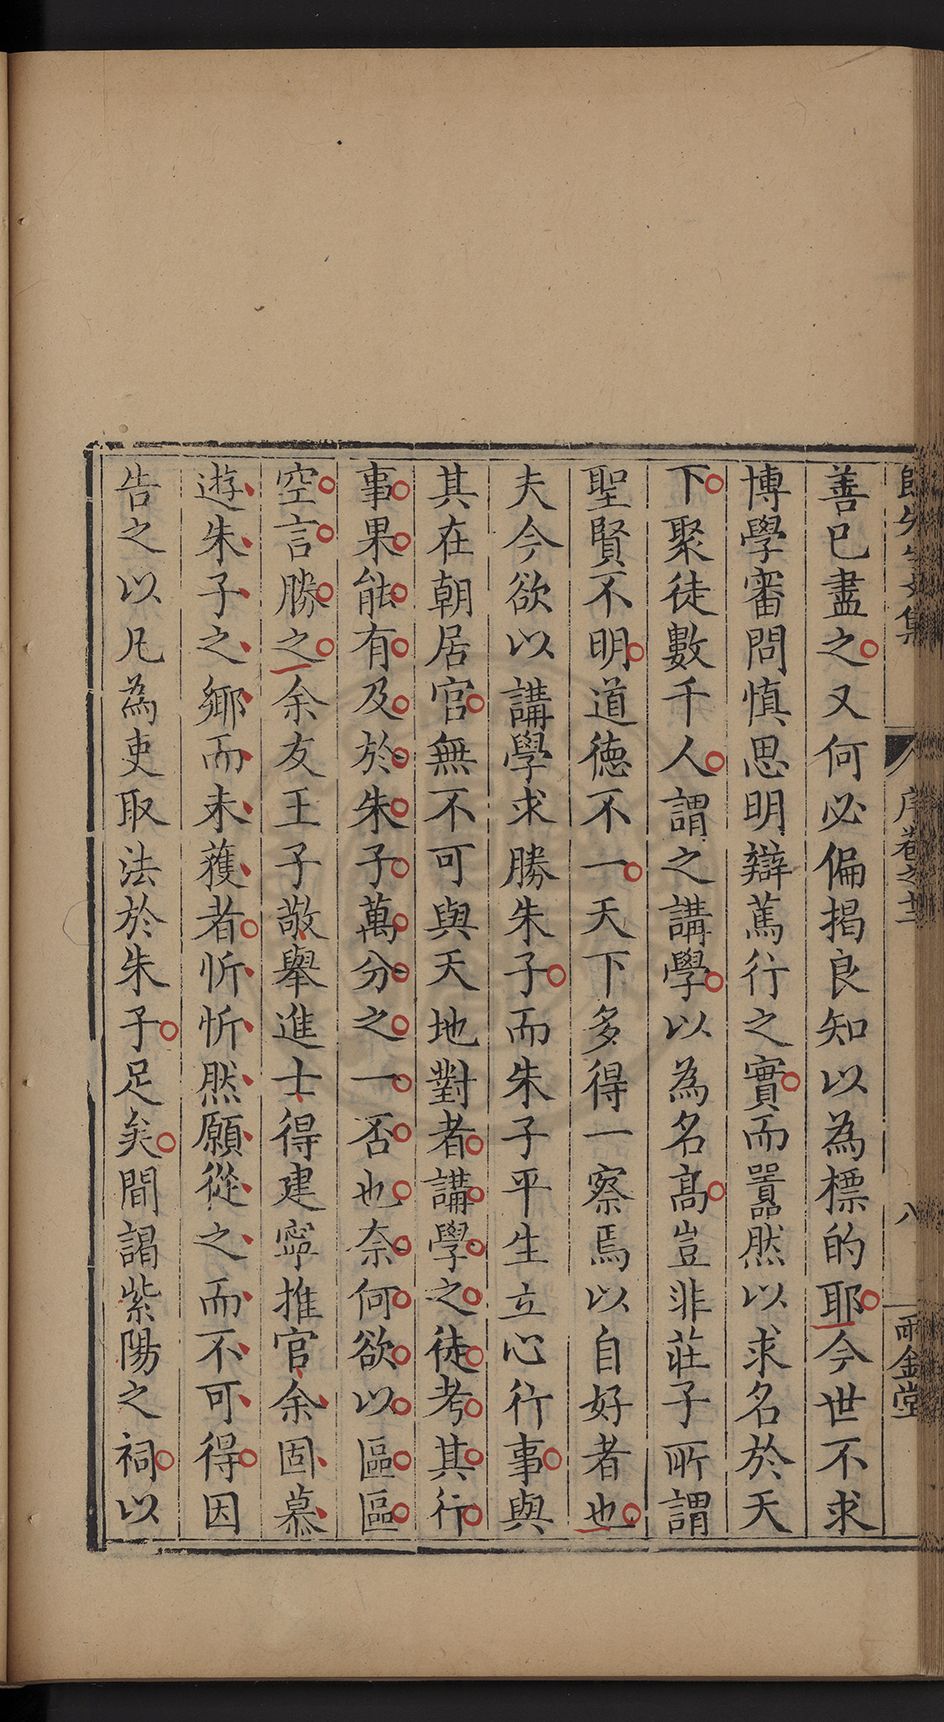 序卷之
八
雨金堂
善已盡之又何必偏揭良知以為標的耶今世不求
博學審問慎思明辯篤行之實而嚚然以求名於天
下聚徒數千人謂之講學以為名高豈非莊子所謂
聖賢不明道德不一天下多得一察焉以自好者也
夫今欲以講學求勝朱子而朱子平生立心行事與
其在朝居官無不可與天地對者講學之徒考其行
事果能有及於朱子萬分之一否也奈何欲以區區
空言勝之余友王子敬舉進士得建寧推官余固慕
遊朱子之鄉而未獲者忻忻然願從之而不可得因
告之以凡為吏取法於朱子足矣間謁紫陽之祠以